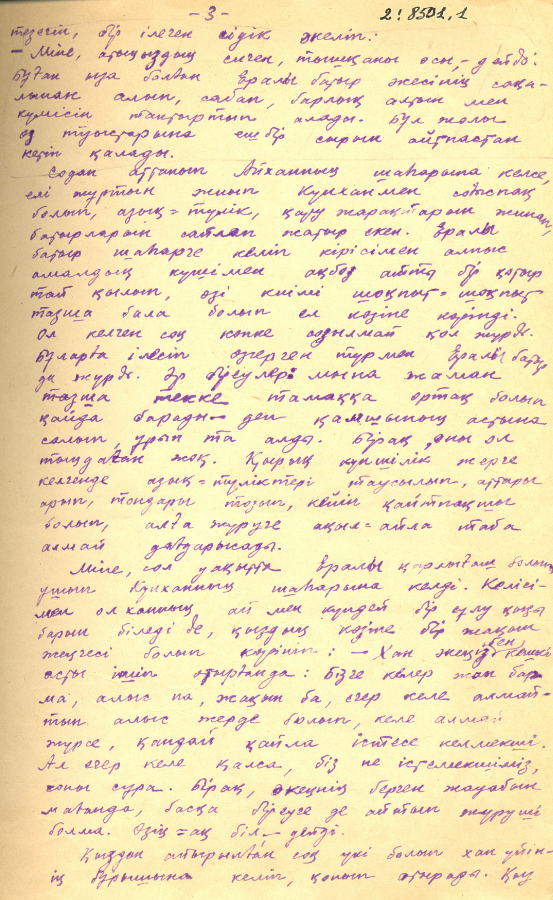 - 3 -
2: 8501, 1
тезегін, бір ілеген сідік әкеліп:
- Міне, атыңыздың сиген, тышқаны осы, - дейді.
Бұған ыза болған Ералы батыр жесінің соңы-
лынан алып, сабап, барлық алтын мен
күмісін таптыртып алады. Бұл жолы
өз туыстарына еш бір сырын айтпастан
кетіп қалады.
Содан аттанып Айханның шаһарына келсе,
елі жұртын жиып Күнханмен соғыспақ
болып, азық = түлік, қару жарақтарын жинап,
батырларын сайлап жатыр екен. Ералы
батыр шаһарге келіп кірісімен алпыс
амалдың күшімен ақбоз атты бір қотыр
тай қылып, өзі киімі шоқпыт = шоқпыт
тазша бала болып ел көзіне көрінді.
Ол келген соң көпке созылмай қол жүрді.
Бұларға ілесіп өзгерген түрмен Ералы батыр
да жүрді. Әр біреулері мына жаман
тазша текке тамаққа ортақ болып
қайда барады - деп қамшының астына
салып, ұрып та алды. Бірақ, оны ол
тыңдаған жоқ. Қырық күншілік жерге
келгенде азық = түліктері таусылып, аттары
арып, тондары тозып, кейін қайтпақшы
болып, алға жүруге ақыл = айла таба
алмай дағдарысады.
Міне, сол уақытта Ералы қарлығаш болып
ұшып Күнханның шаһарына келді. Келісі-
мен ол ханның ай мен күндей бір сұлу қызы
барын біледі де, қыздың көзіне бір жақын
жеңгесі болып көрініп: - Хан әкеңізбен кешкі
асты ішіп отырғанда: Бізге келер жан бар
ма, алыс па, жақын ба, егер келе алмай-
тын алыс жерде болып, келе алмай
жүрсе, қандай қайла істесе келмекші.
Ал егер келе қалса, біз не істемекшіміз,
соны сұра. Бірақ, әкеңнің берген жауабын
маған да, басқа біреуге де айтып жүруші
болма. Өзің = ақ біл - дейді.
Қыздан айырылған соң үкі болып хан үйін-
ің бұрышына келіп, қонып отырады. Қыз